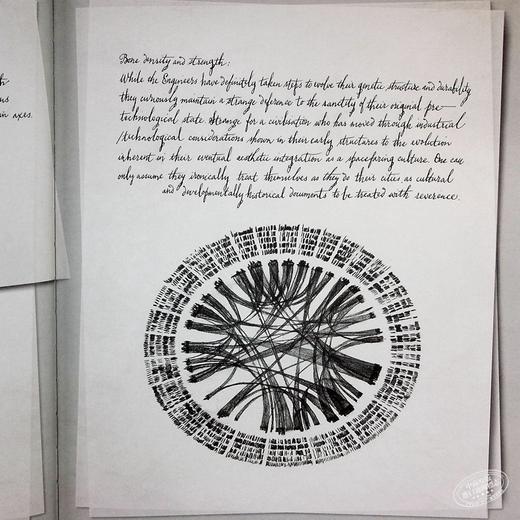 th
us
in axes.
Bone density and strength:
While the Engineers have definitely taken steps to evolve their genetic structure and durability
they curiously maintain a strange deference to the sanctity of their original pre-
technological state. Strange for a civilisation who has moved through industrial
/technological considerations shown in their early structures to the evolution
inherent in their eventual aesthetic integration as a spacefaring culture. One can
only assume they ironically treat themselves as they do their cities, as cultural
and developmentally historical documents to be treated with reverence.